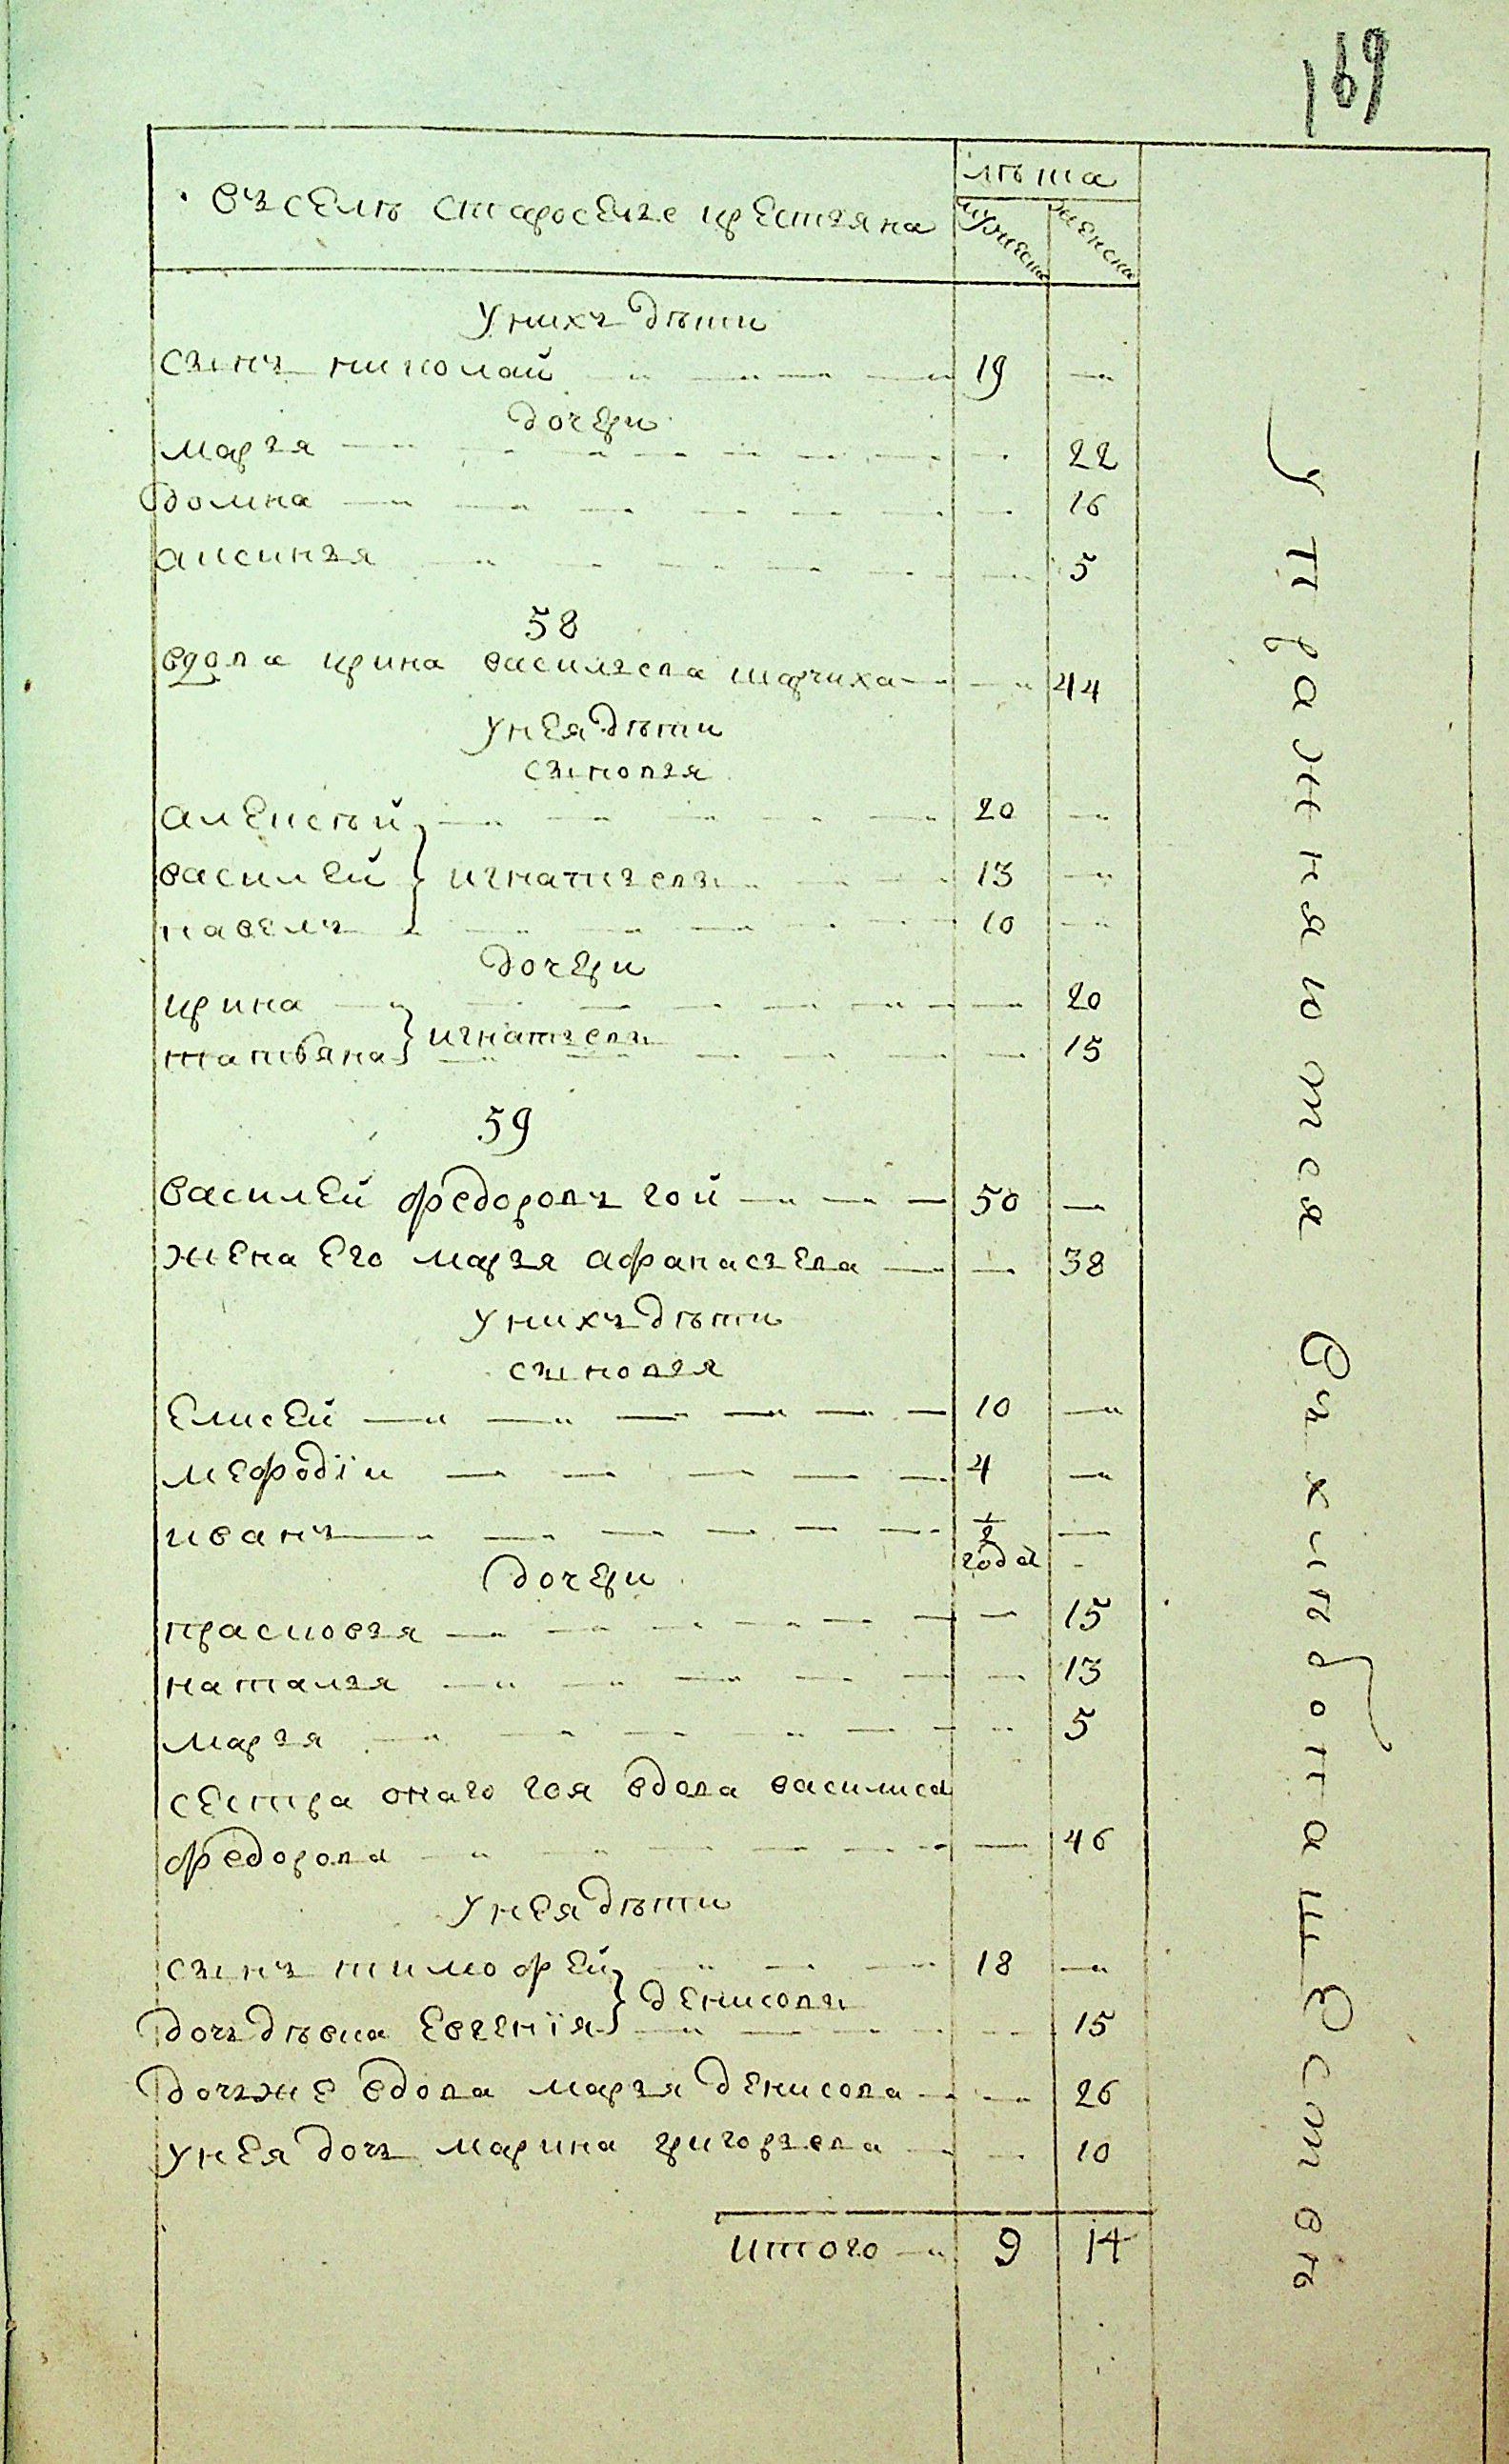 169
въселѣ старосечье крестьяна
лѣта
мужеска
женска
Унихъ дѣти
сынъ николай 19
дочери
марья 22
домна 16
аксинья 5
58
вдова ирина васильева шарчиха 44
Унея дѣти
сыновья
алексѣй 20
василей игнатьевы 13
павелъ 10
дочери
ирина 20
татьяна игнатьевы 15
59
василей федоровъ гой 50
жена его марья афанасьева 38
Унихъ дѣти
сыновья
елисей 10
мефодїи 4
иванъ 1/2
года
дочери
прасковья 15
наталья 13
марья 5
сестра онаго гоя вдова василиса
федорова 46
Унея дѣти
сынъ тимофей 18
денисовы
дочь дѣвка евгенїя 15
дочьже вдова марья денисова 26
унея дочь марина григорьева 10
итого 9 14
Упражняются въ хлѣбопашествѣ